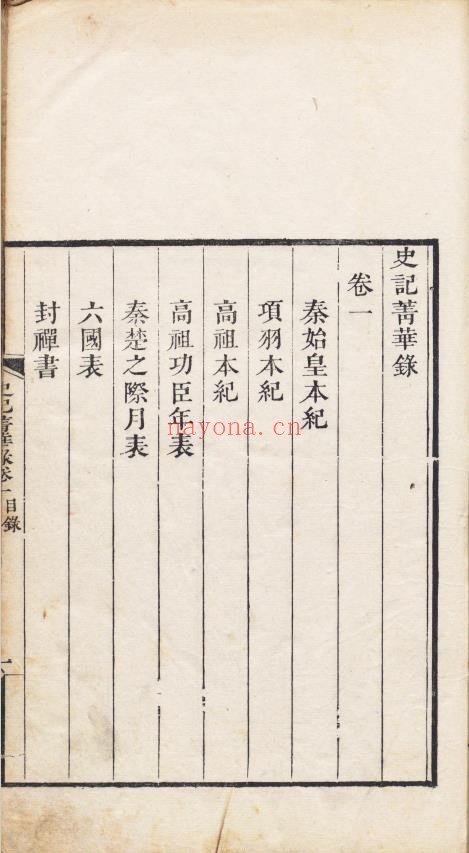 史記菁華錄
卷一
秦始皇本紀
項羽本紀
高祖本紀
高祖功臣年表
秦楚之際月表
六國表
封禪書
史記菁華錄卷一目錄
一
nayona.cn